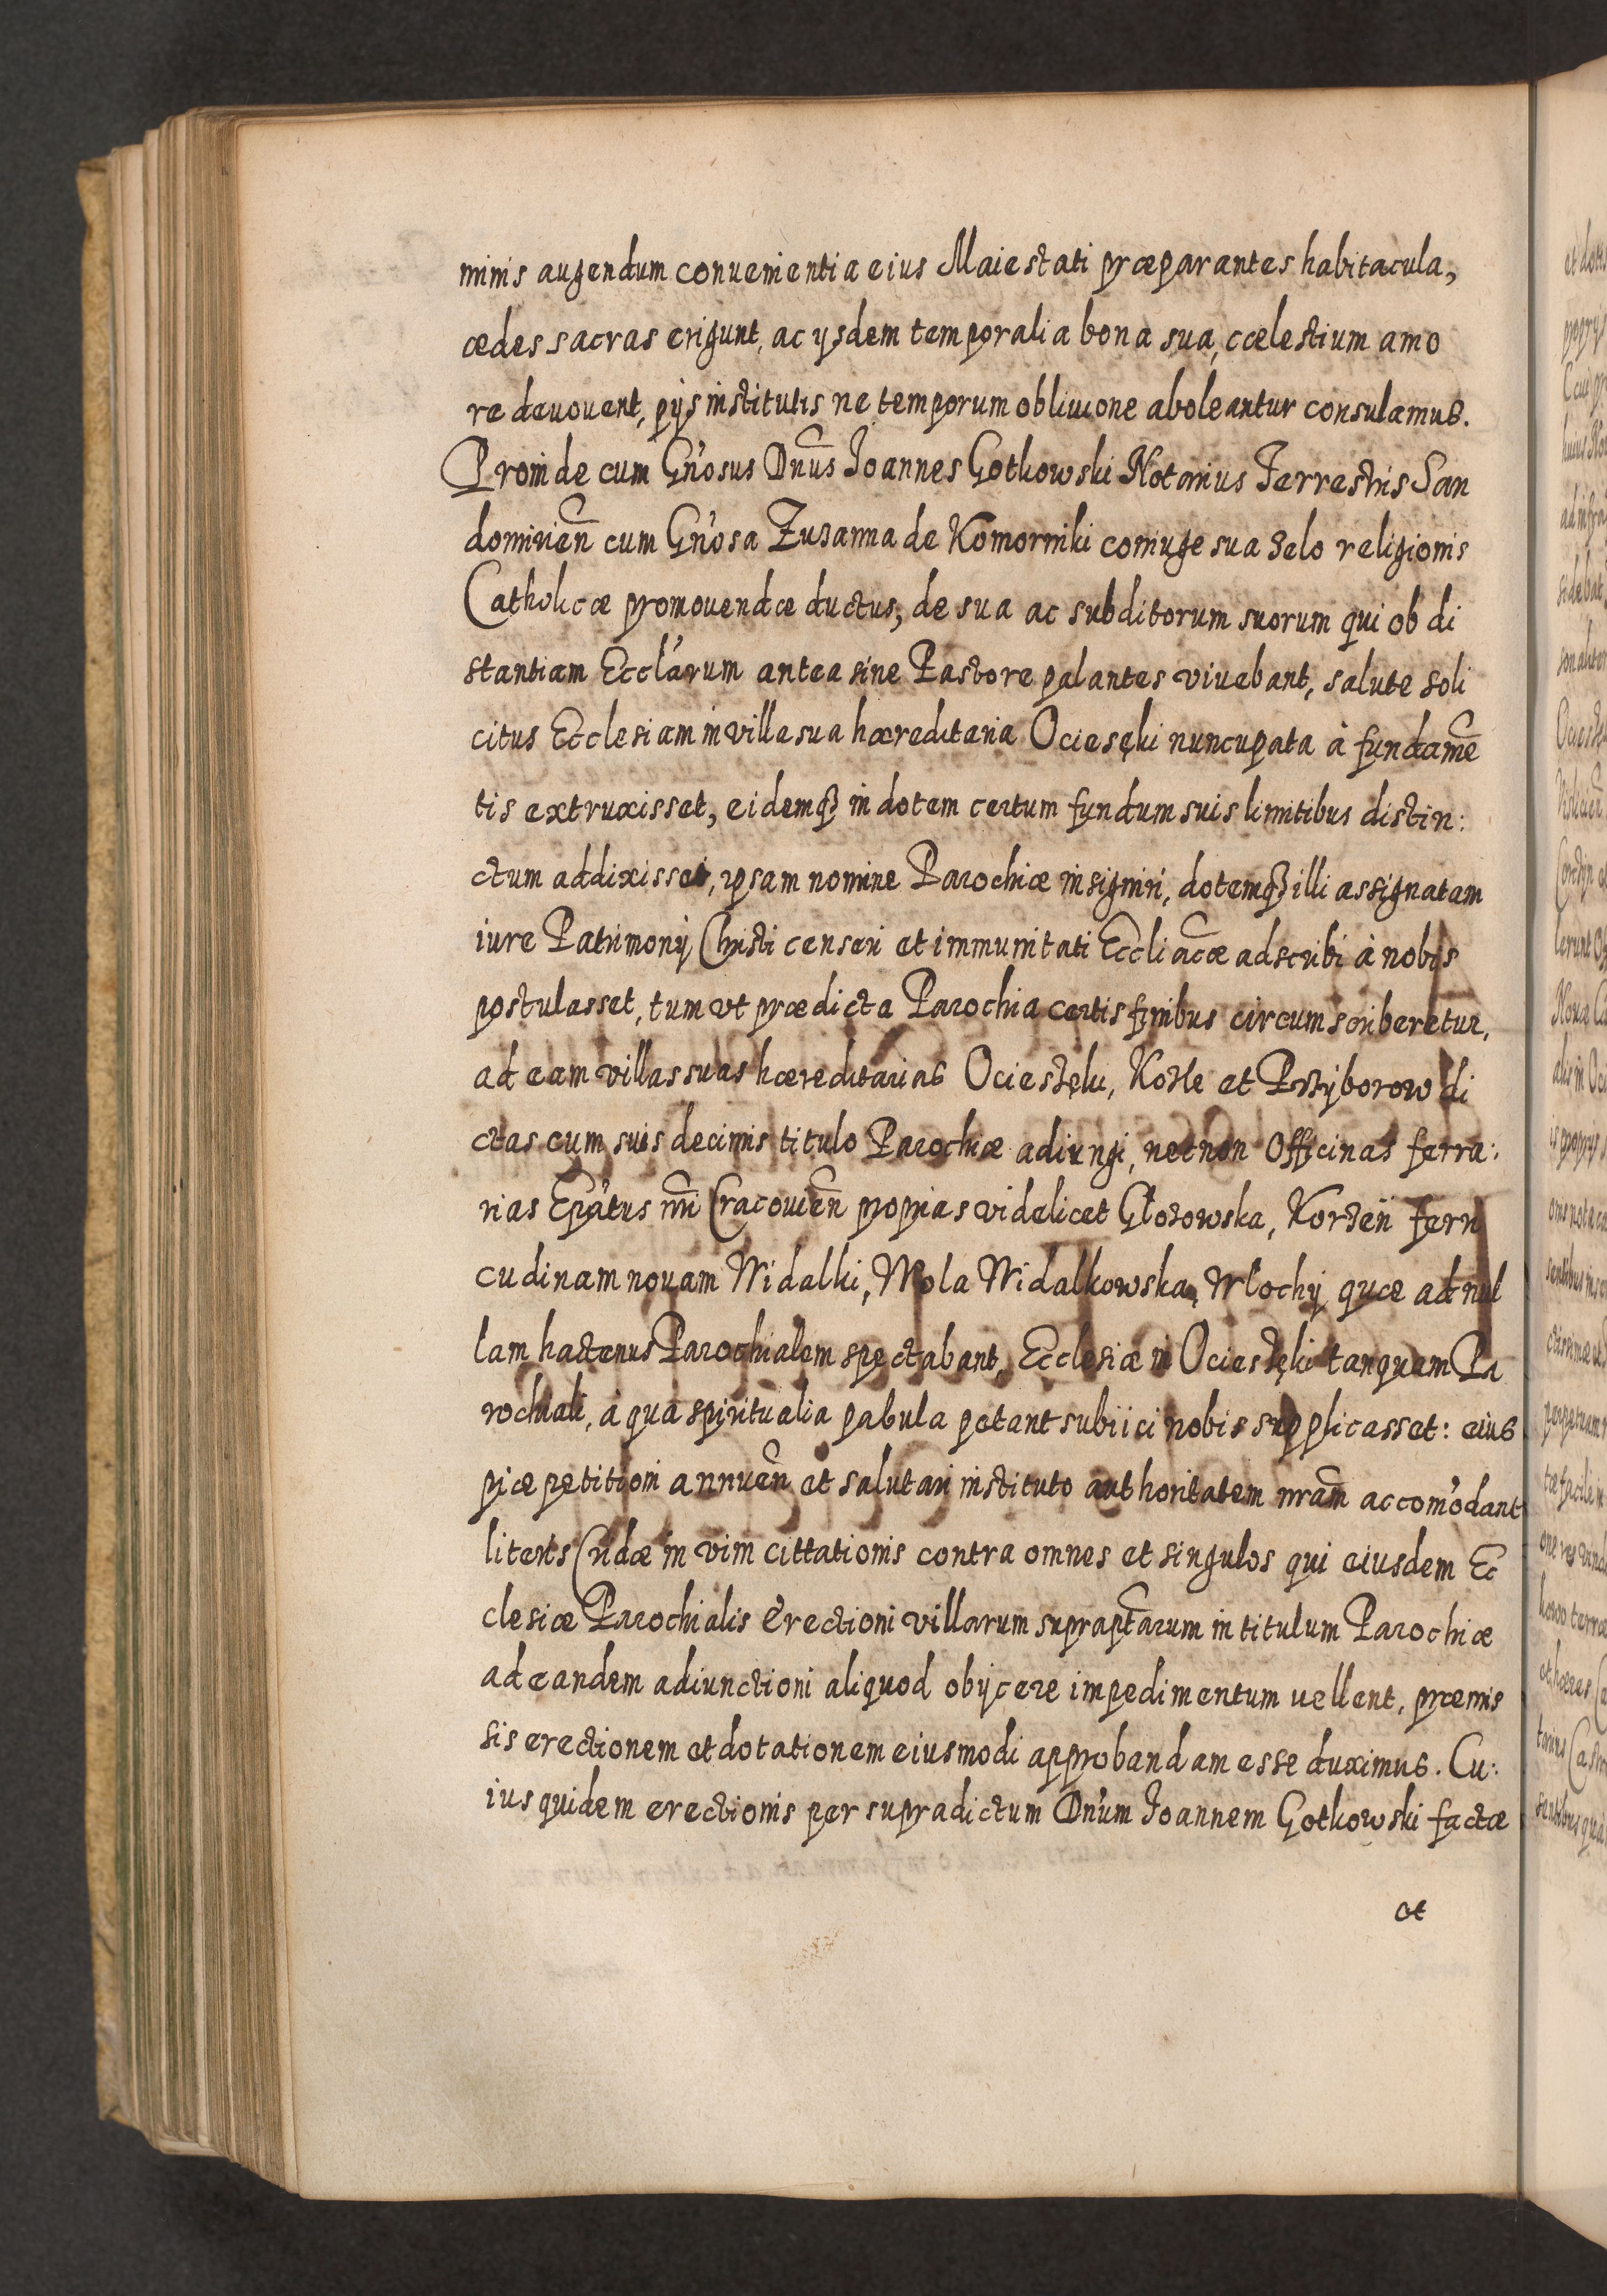 minis augendum conuenientia eius Maiestati præparantes habitacula,
ædes sacras erigunt, ac ysdem temporalia bona sua, cœlestium amo
re deuouent, pijs institutis ne temporum obliuione aboleantur consulamus.
Proinde cum Gn̄osus Dn̄us Joannes Gotkowski Notarius Terrestris San
domirien̄ cum Gn̄osa Zusanna de Komorniki coniuge sua zelo religionis
Catholicæ promouendæ ductus, de sua ac subditorum suorum qui ob di
stantiam Eccl̄arum antea sine Pastore palantes viuebant, salute soli
citus Ecclesiam in villa sua hæreditaria Ociesęki nuncupata à fundamē
tis extruxisset, eidemq3 in dotem certum fundum suis limitibus distin:
ctum addixisset, ipsam nomine Parochiæ insigniri, dotemq3 illi assignatam
iure Patrimonÿ Christi censeri et immunitati Eccliac̄æ adscribi à nobis
postulasset, tum vt prædicta Parochia certis finibus circumscriberetur,
ad eam villas suas hæreditarias Ociestęki, Kozle et Przÿborow di
ctas cum suis decimis titulo Parochiæ adiungi, necnon officinas ferra:
rias Ep̄atus nr̄i Cracouien̄ proprias videlicet Głozowska, Korzen̄ ferri
cudinam nouam Widalki, Wola Widalkowska, Włochÿ quæ ad nul
lam hactenus Parochialem spectabant, Ecclesiæ in Ociestęki tanquam Pa
rochiali, à qua spiritualia pabula petant subiici nobis supplicasset: eius
piæ petitioni annuen̄ et salutari instituto authoritatem nr̄am accom̄odant
literis Cridæ in vim cittationis contra omnes et singulos qui eiusdem Ec
clesiæ Parochialis erectioni villarum suprapt̄arum in titulum Parochiæ
ad eandem adiunctioni aliquod obijcere impedimentum uellent, præmis
sis erectionem et dotationem eiusmodi approbandam esse duximus. Cu:
ius quidem erectionis per supradictum Dn̄um Joannem Gotkowski factæ
et